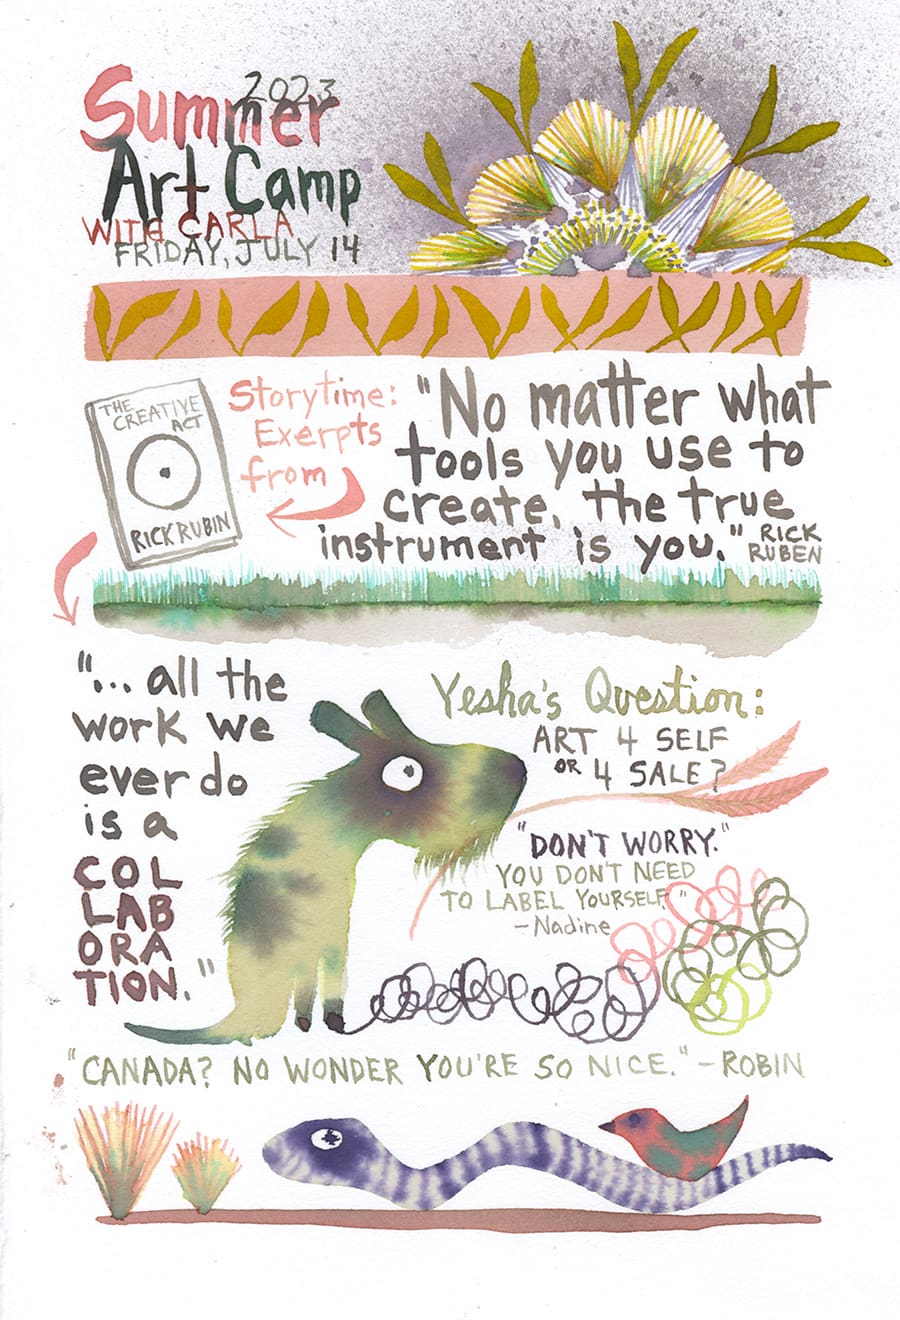 2023
Summer
Art Camp
WITH CARLA
FRIDAY, JULY 14
THE
CREATIVE
ACT
RICK RUBIN
Storytime:
Exerpts
from
"No matter what
tools you use to
create, the true
instrument is you." RICK
RUBEN
"... all the
work we
ever do
is a
COL
LAB
ORA
TION."
Yesha's Question:
ART 4 SELF
OR 4 SALE?
"DON'T WORRY."
YOU DON'T NEED
TO LABEL YOURSELF."
-Nadine
"CANADA? NO WONDER YOU'RE SO NICE." -ROBIN